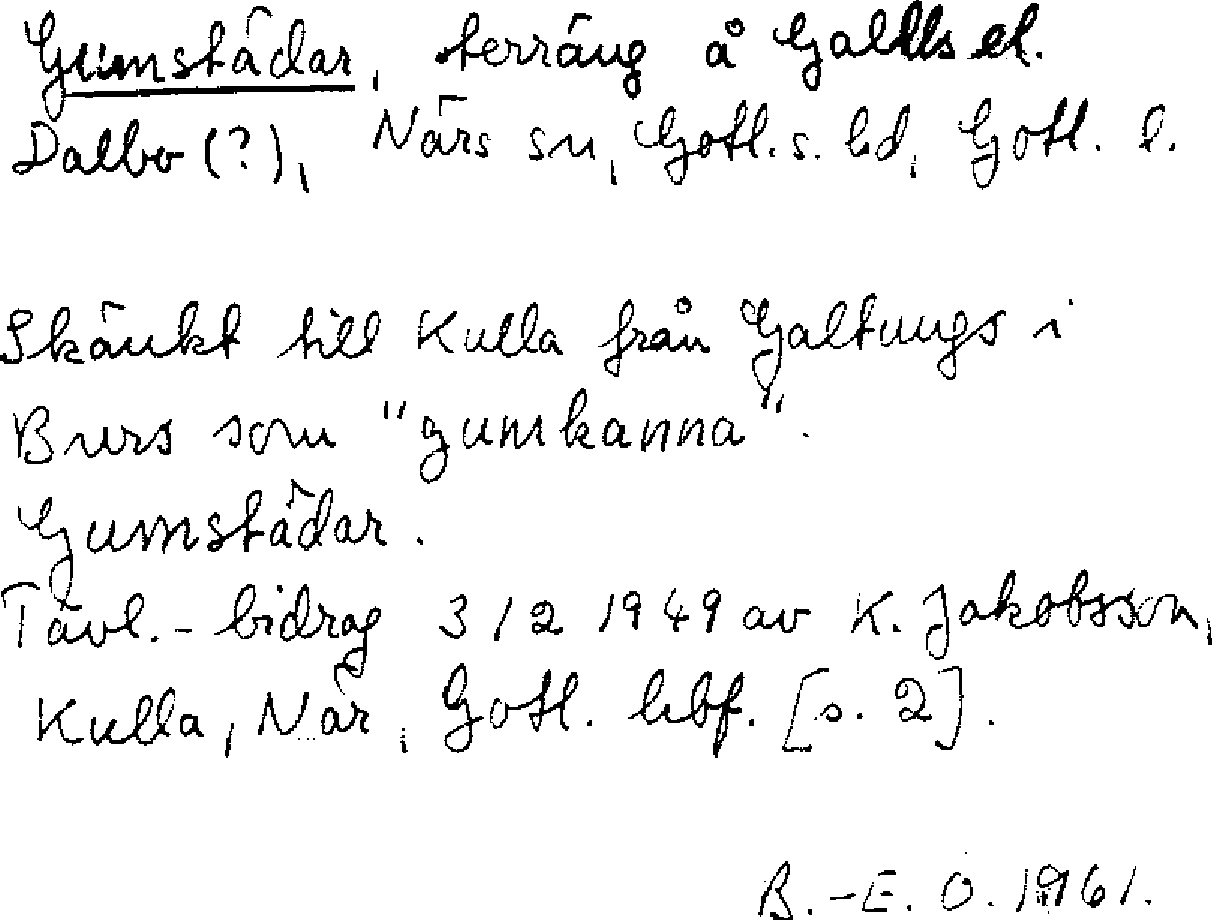 Gumstädar, terräng å Galtls el.
Dalbo (?), När​s sn, Gotl. s. hd, Gotl. l.
Skänkt till Kulla från Galtungs i
Burs som "gumkanna".
Gumstädar.
Tävl.-bidrag 3/2 1949 av K. Jakobsson,
Kulla, När, Gotl. hbf. [s. 2].
B.-E. O. 1961.